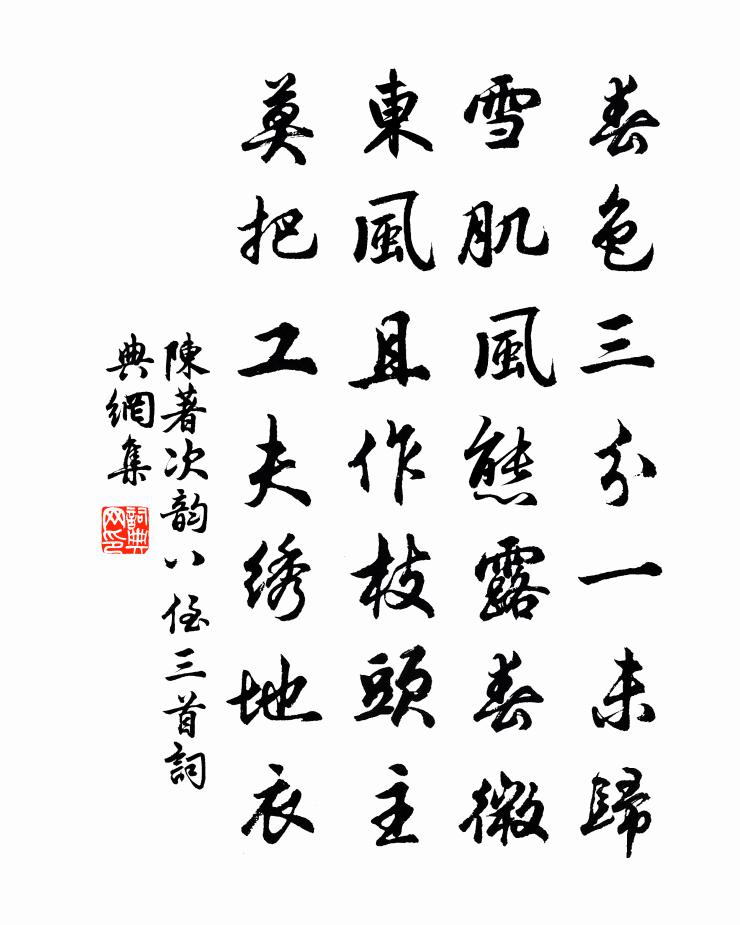 春色三分一未歸
雪肌風態露春微
東風且作枝頭主
莫把工夫绣地衣
陳著次韵八侄三首詞
典網集
詞典
网印